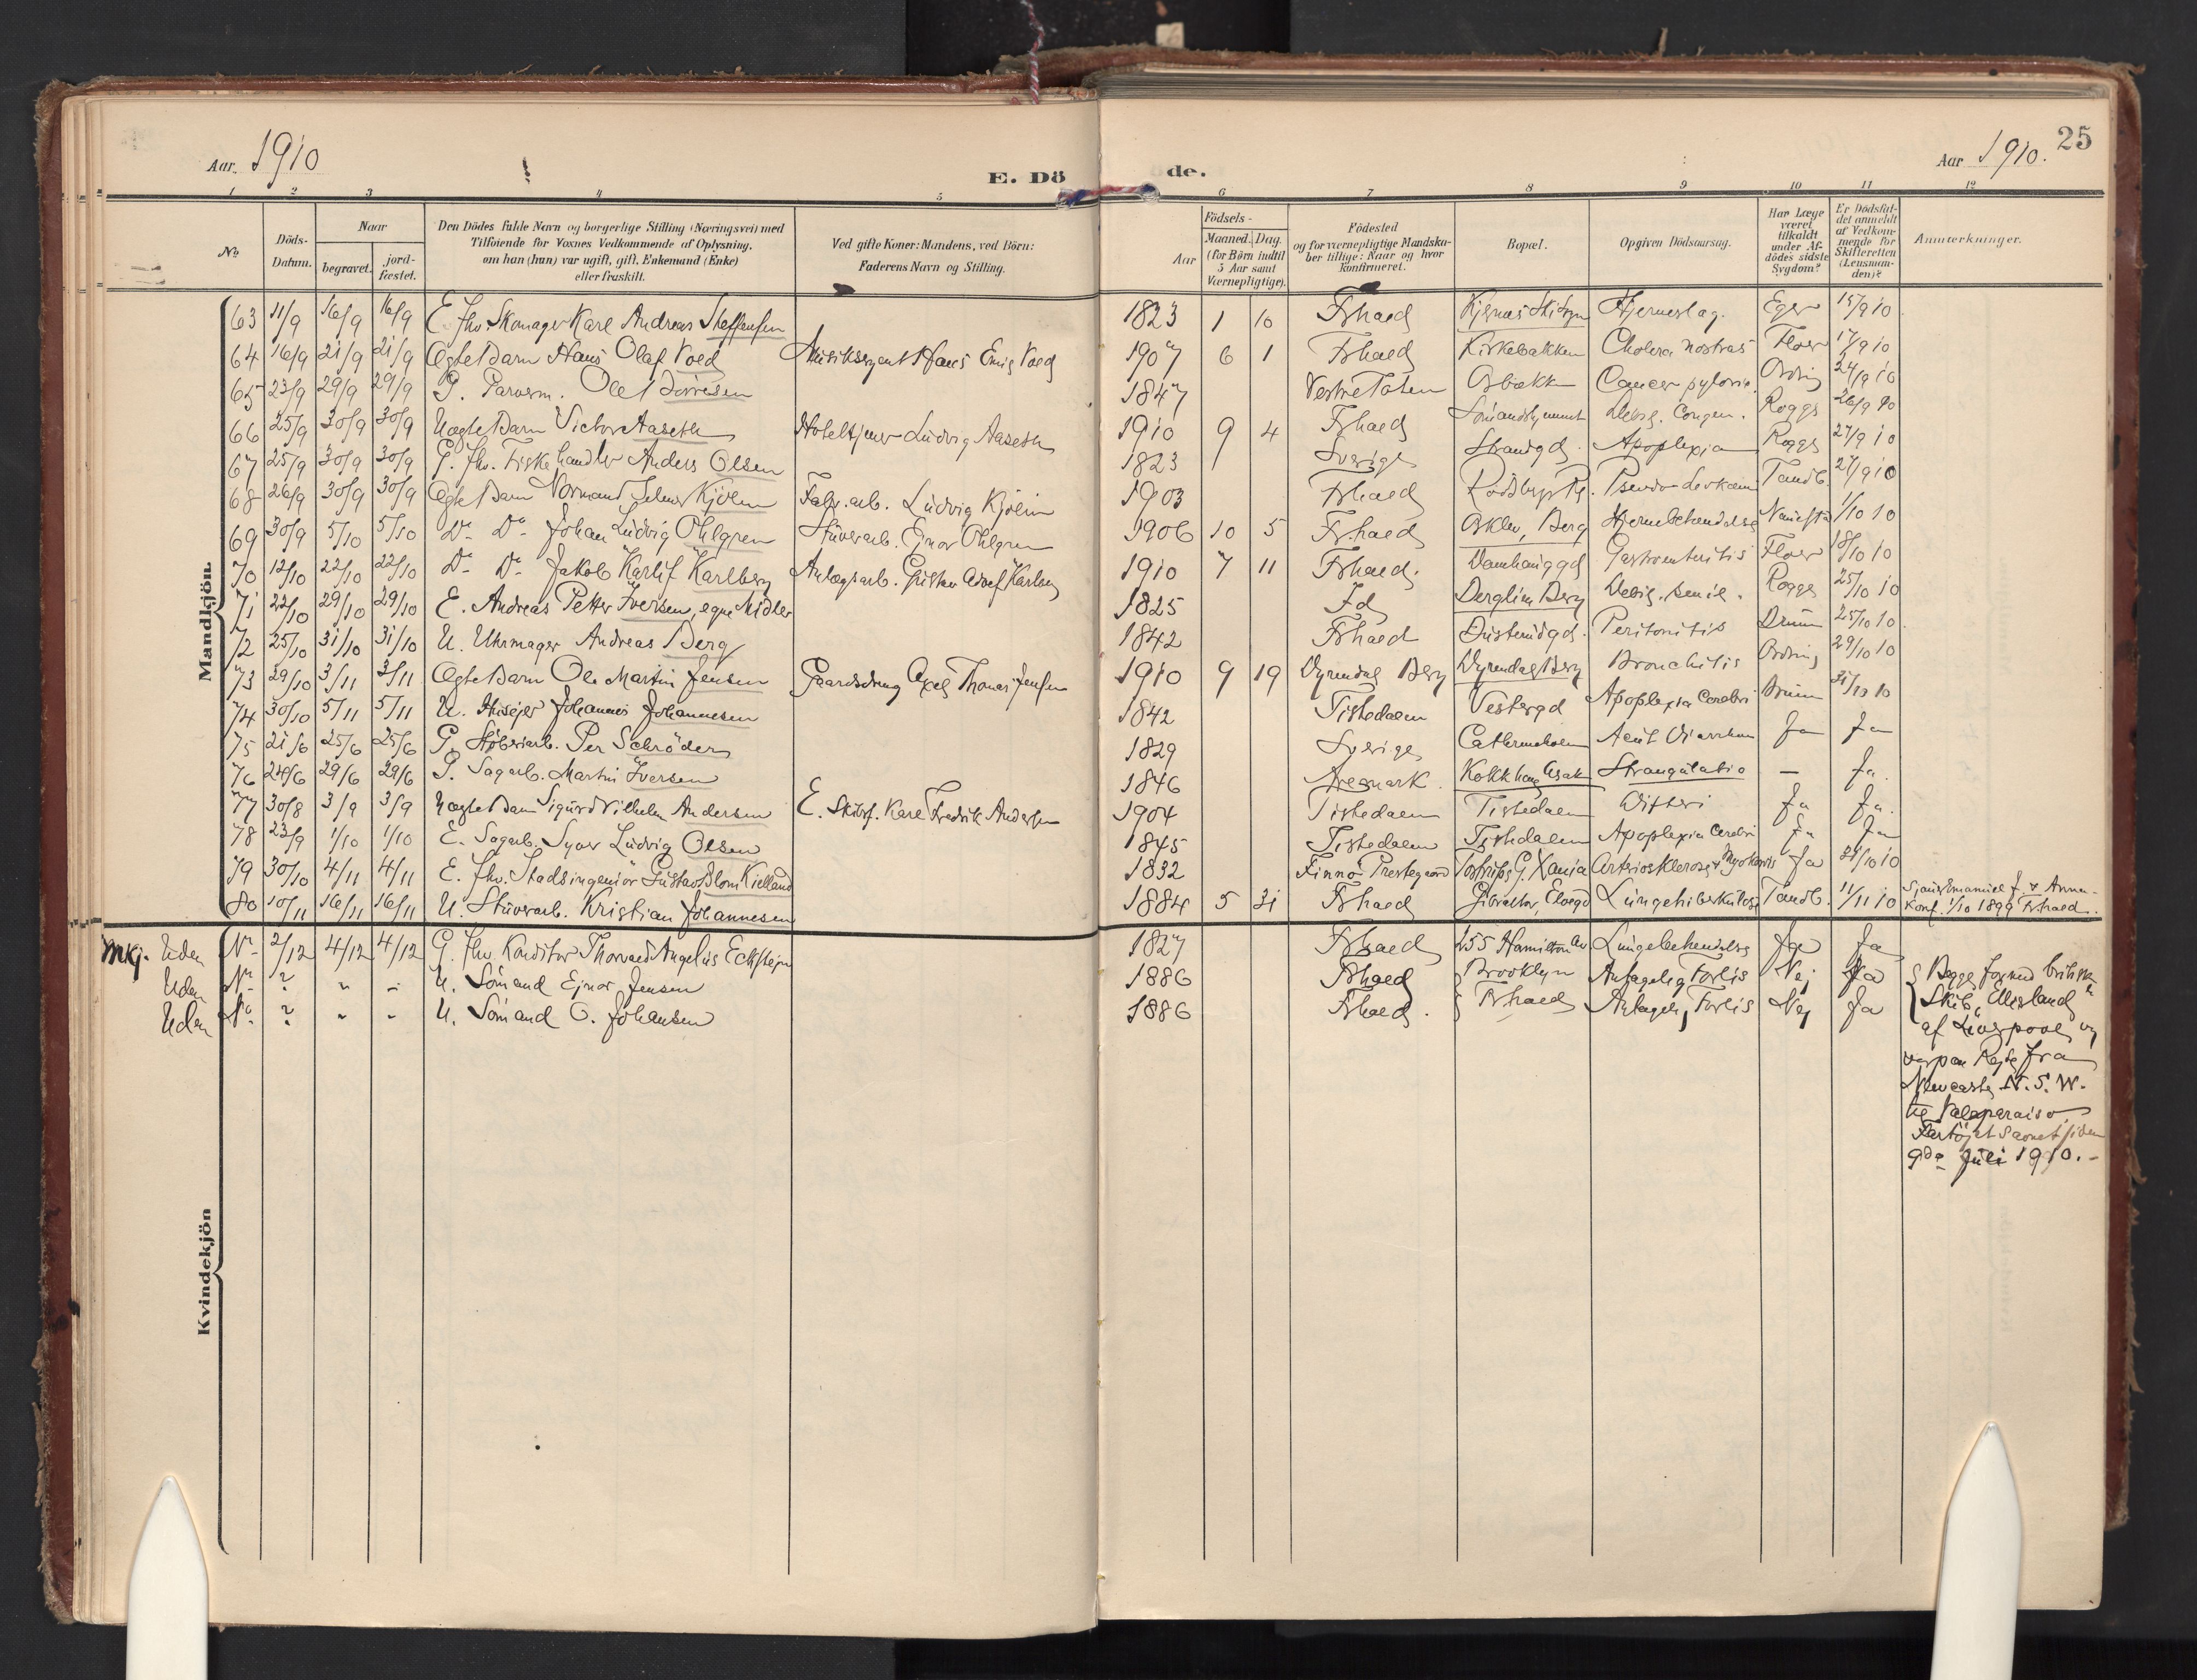 25
Aar. 1910
E. Dö de.
Aar 1910.
1 2 3 4 5 6 7 8 9 10 11 12
No
Döds-Datum.
Naar
begravet.
jord-fæstet.
Den Dödes fulde Navn og borgerlige Stilling (Næringsvei) med
Tilföiende for Voxnes Vedkommende af Oplysning,
om han (hun) var ugift, gift, Enkemand (Enke)
eller fraskilt.
Ved gifte Koner: Mandens, ved Börn:
Faderens Navn og Stilling.
Födsels-
Aar
Maaned. Dag.
(for Börn indtil
5 Aar samt
Værnepligtige).
Födested
og for værnepligtige Mandska-
ber tillige: Naar og hvor
konfirmeret.
Bopæl.
Opgiven Dödsaarsag.
Har Læge
været
tilkaldt
under Af-
dödes sidste
Sygdom?
Er Dödsfal-
det anmeldt
af Vedkom-
mende for
Skifteretten
(Lensman-
den)?
Anmerkninger.
Mandkjön.
63 11/9 16/9 16/9 E. fhv. Skomager Karl Andreas Steffensen 1823 1 10 Frhald Hjerneslag. Eger 15/9 10
64 16/9 21/9 21/9 Ægte Barn Hans Olaf Vold Musiksergent Hans Emil Vold 1907 6 1 Frhald Kirkebakken Cholera nostras Floer 17/9 10
65 23/9 29/9 29/9 G. Garverm. Ole Börresen 1847 Vestre Toten Osbækken Cancer pylori. 24/9 10
66 25/9 30/9 30/9 Uægte Barn Victor Aaseth Hoteltjener Ludvig Aaseth 1910 9 4 Frhald Debil. congen. Roggs 26/9 10
67 25/9 30/9 30/9 G. fhv. Fiskehandler Anders Olsen 1823 Sverige Strandgd. Apoplexia Roggs 27/9 10
68 26/9 30/9 30/9 Ægte Barn Normand Kjölin Fabr. arb. Ludvig Kjölin 1903 Frhald Rödsbergs Pl. Pseudo-Levkæmi Tandb. 27/9 10
69 30/9 5/10 5/10 Do Do Johan Ludvig Ohlgren Stuverarb. Ejnar Ohlgren 1906 10 5 Fr.hald Asklev, Berg Hjernebetændelse 1/10 10
70 12/10 22/10 22/10 Do Do Jakob Karlif Karlberg Anlægsarb. Gustav Adolf Karlberg 1910 7 11 Frhald. Damhauggd Gastroenteritis Floer 18/10 10
71 22/10 29/10 29/10 E. Andreas Petter Iversen, egne Midler 1825 Id Berg Debil. senil. Roggs 25/10 10
72 25/10 31/10 31/10 U. Uhrmager Andreas Berg 1842 Frhald Peritonitis 25/10 10
73 29/10 3/11 3/11 Ægte Barn Ole Martin Jensen Gaardsdreng Axel Thomas Jensen 1910 9 19 Dyrendal Berg Dyrendal Berg Bronchitis 29/10 10
74 30/10 5/11 5/11 U. Husejer Johannes Johannesen 1842 Tistedalen Vestergd Apoplexia Cerebri 31/10 10
75 21/6 25/6 25/6 G. Stöberiarb. Per Schröder 1829 Sverige Cathrineholm Acut Diarrhee Ja Ja
76 24/6 29/6 29/6 G. Sagarb. Martin Iversen 1846 Aremark Strangulatio — Ja.
77 30/8 3/9 3/9 Uægte Barn Sigurd Vilhelm Andersen E. Skibsf. Karl Fredrik Andersen 1904 Tistedalen Tistedalen Difteri Ja Ja.
78 23/9 1/10 1/10 E. Sagarb. Syver Ludvig Olsen 1845 Tistedalen Tistedalen Apoplexia Cerebri Ja Ja
79 30/10 4/11 4/11 E. fhv. Stadsingeniör Gustav Blom Kielland 1832 Finnö Prestegaard Tostrups G. Xania Artriosklerose + Myokardis Ja 31/10 10
80 10/11 16/11 16/11 U. Stuverarb. Kristian Johannesen 1884 5 31 Frhald Gibraltar, Lungetuberkulose Tandb. 11/11 10 Emanuel J. & Anna. Konf. 1/10 1899 Frhald.
Mkj. Uden No 2/12 4/12 4/12 G. fhv. Konditor Thorvald Angelus Eckstein 1827 Frhald 255 Hamilton Av Brooklyn Lungebetændelse Ja Ja
Uden No ? " - U. Sömand Ejnar Jensen 1886 Frhald Frhald Antagelig Forlis Nej Ja
Uden No ? " - U. Sömand O. Johansen 1886 Frhald. Antagelig Forlis Nej Ja
Begge formed britisk
Skib "Ellisland"
af Liverpool og
var paa Rejse fra
Newcastle N. S. W.
til Valparaiso.
Fartöjet Savnet siden
9de Juli 1910.-
Kvindekjön